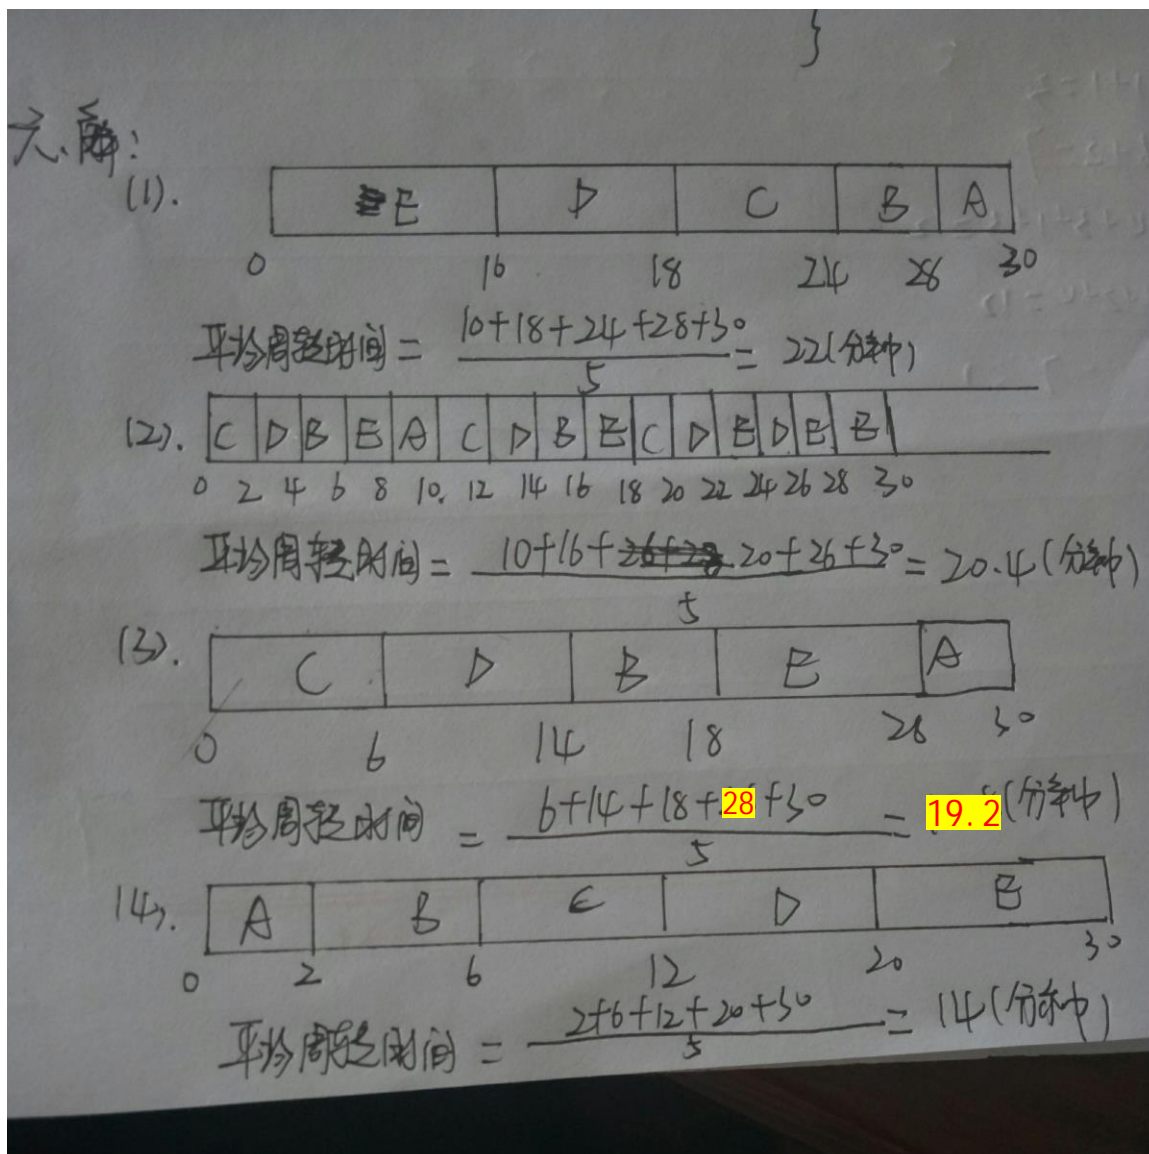 }
六、解:
(1).
E D C B A
0 10 18 24 28 30
平均周转时间 = 10+18+24+28+30 / 5 = 22(分钟)
(2). C D B E A C D B E C D E D E E
0 2 4 6 8 10. 12 14 16 18 20 22 24 26 28 30
平均周转时间 = 10+16+20+26+30 / 5 = 20.4(分钟)
(3). C D B E A
0 6 14 18 28 30
平均周转时间 = 6+14+18+28+30 / 5 = 19.2(分钟)
(4). A B C D E
0 2 6 12 20 30
平均周转时间 = 2+6+12+20+30 / 5 = 14(分钟)